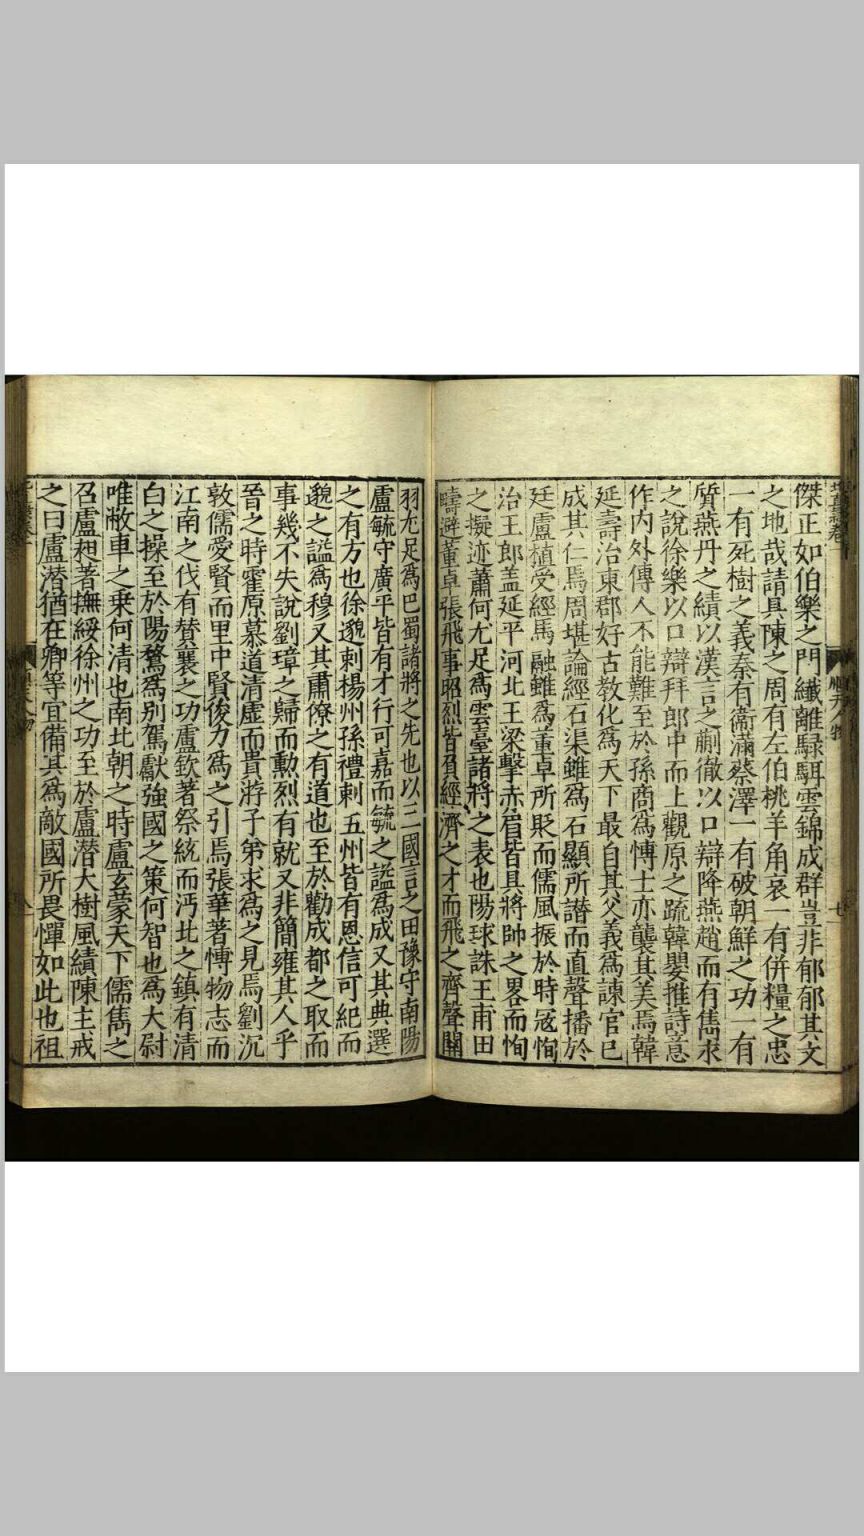 傑正如伯樂之門纖離騄駬雲錦成群豈非郁郁其文
之地哉請具陳之周有左伯桃羊角哀一有併糧之忠
一有死樹之義秦有衞滿蔡澤一有破朝鮮之功一有
質燕丹之績以漢言之蒯徹以口辯降燕趙而有雋求
之說徐樂以口辯拜郎中而上觀原之疏韓嬰推詩意
作內外傳人不能難至於孫商爲博士亦襲其美焉韓
延壽治東郡好古教化爲天下最自其父義爲諫官已
成其仁焉周堪論經石渠雖爲石顯所譖而直聲播於
廷盧植受經馬融雖爲董卓所貶而儒風振於時冦恂
治王郎盖延平河北王梁擊赤眉皆具將帥之畧而恂
之擬迹蕭何尤足爲雲臺諸將之表也陽球誅王甫田
疇避董卓張飛事昭烈皆負經濟之才而飛之齊聲關
羽尤足爲巴蜀諸將之先也以三國言之田豫守南陽
盧毓守廣平皆有才行可嘉而毓之謚爲成又其典選
之有方也徐邈剌楊州孫禮剌五州皆有恩信可紀而
邈之謚爲穆又其肅僚之有道也至於勸成都之取而
事幾不失說劉璋之歸而勳烈有就又非簡雍其人乎
晉之時霍原慕道清虛而貴游子第求爲之見焉劉沉
敦儒愛賢而里中賢俊力爲之引焉張華著愽物志而
江南之伐有賛襄之功盧欽著祭統而沔北之鎮有清
白之操至於陽騖爲别駕獻強國之策何智也爲大尉
唯敝車之乗何清也南北朝之時盧玄蒙天下儒雋之
召盧昶著撫綏徐州之功至於盧潜大樹風績陳主戒
之曰盧潜猶在卿等宜備其爲敵國所畏憚如此也祖